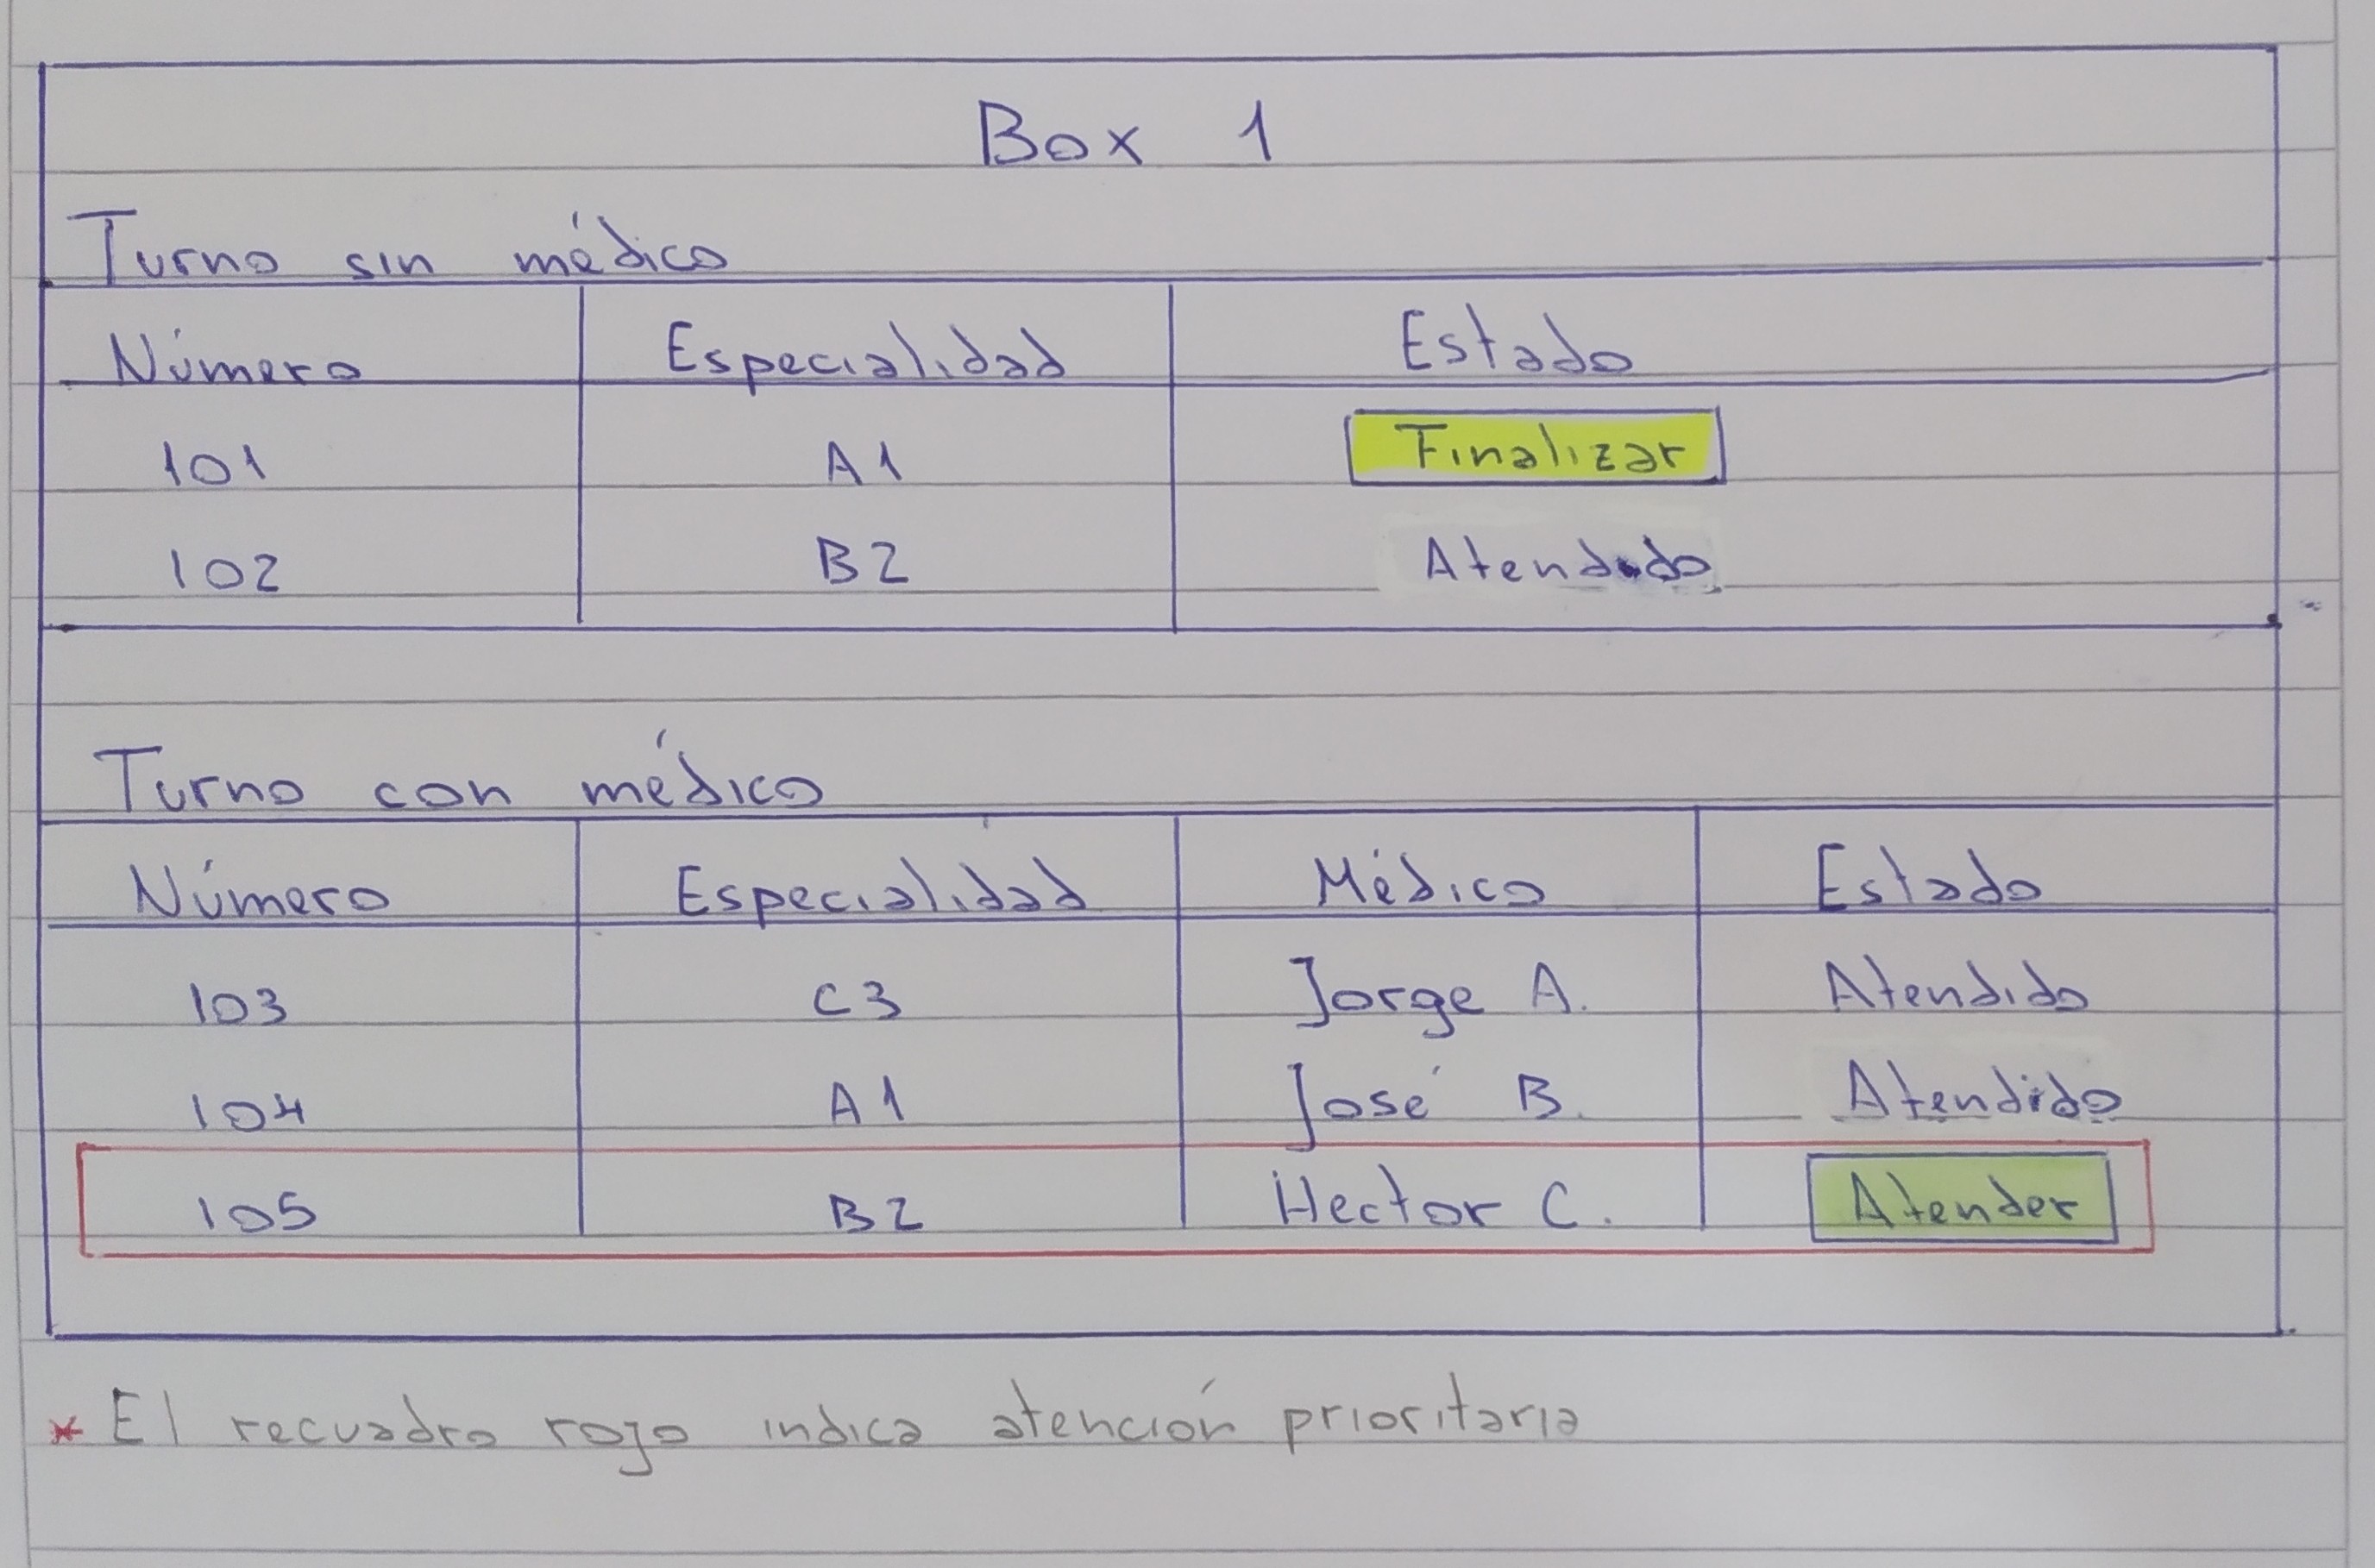 Box 1
Turno sin médico
Número Especialidad Estado
101 A1 Finalizar
102 B2 Atendido
Turno con médico
Número Especialidad Médico Estado
103 C3 Jorge A. Atendido
104 A1 José B. Atendido
105 B2 Hector C. Atender
* El recuadro rojo indica atención prioritaria